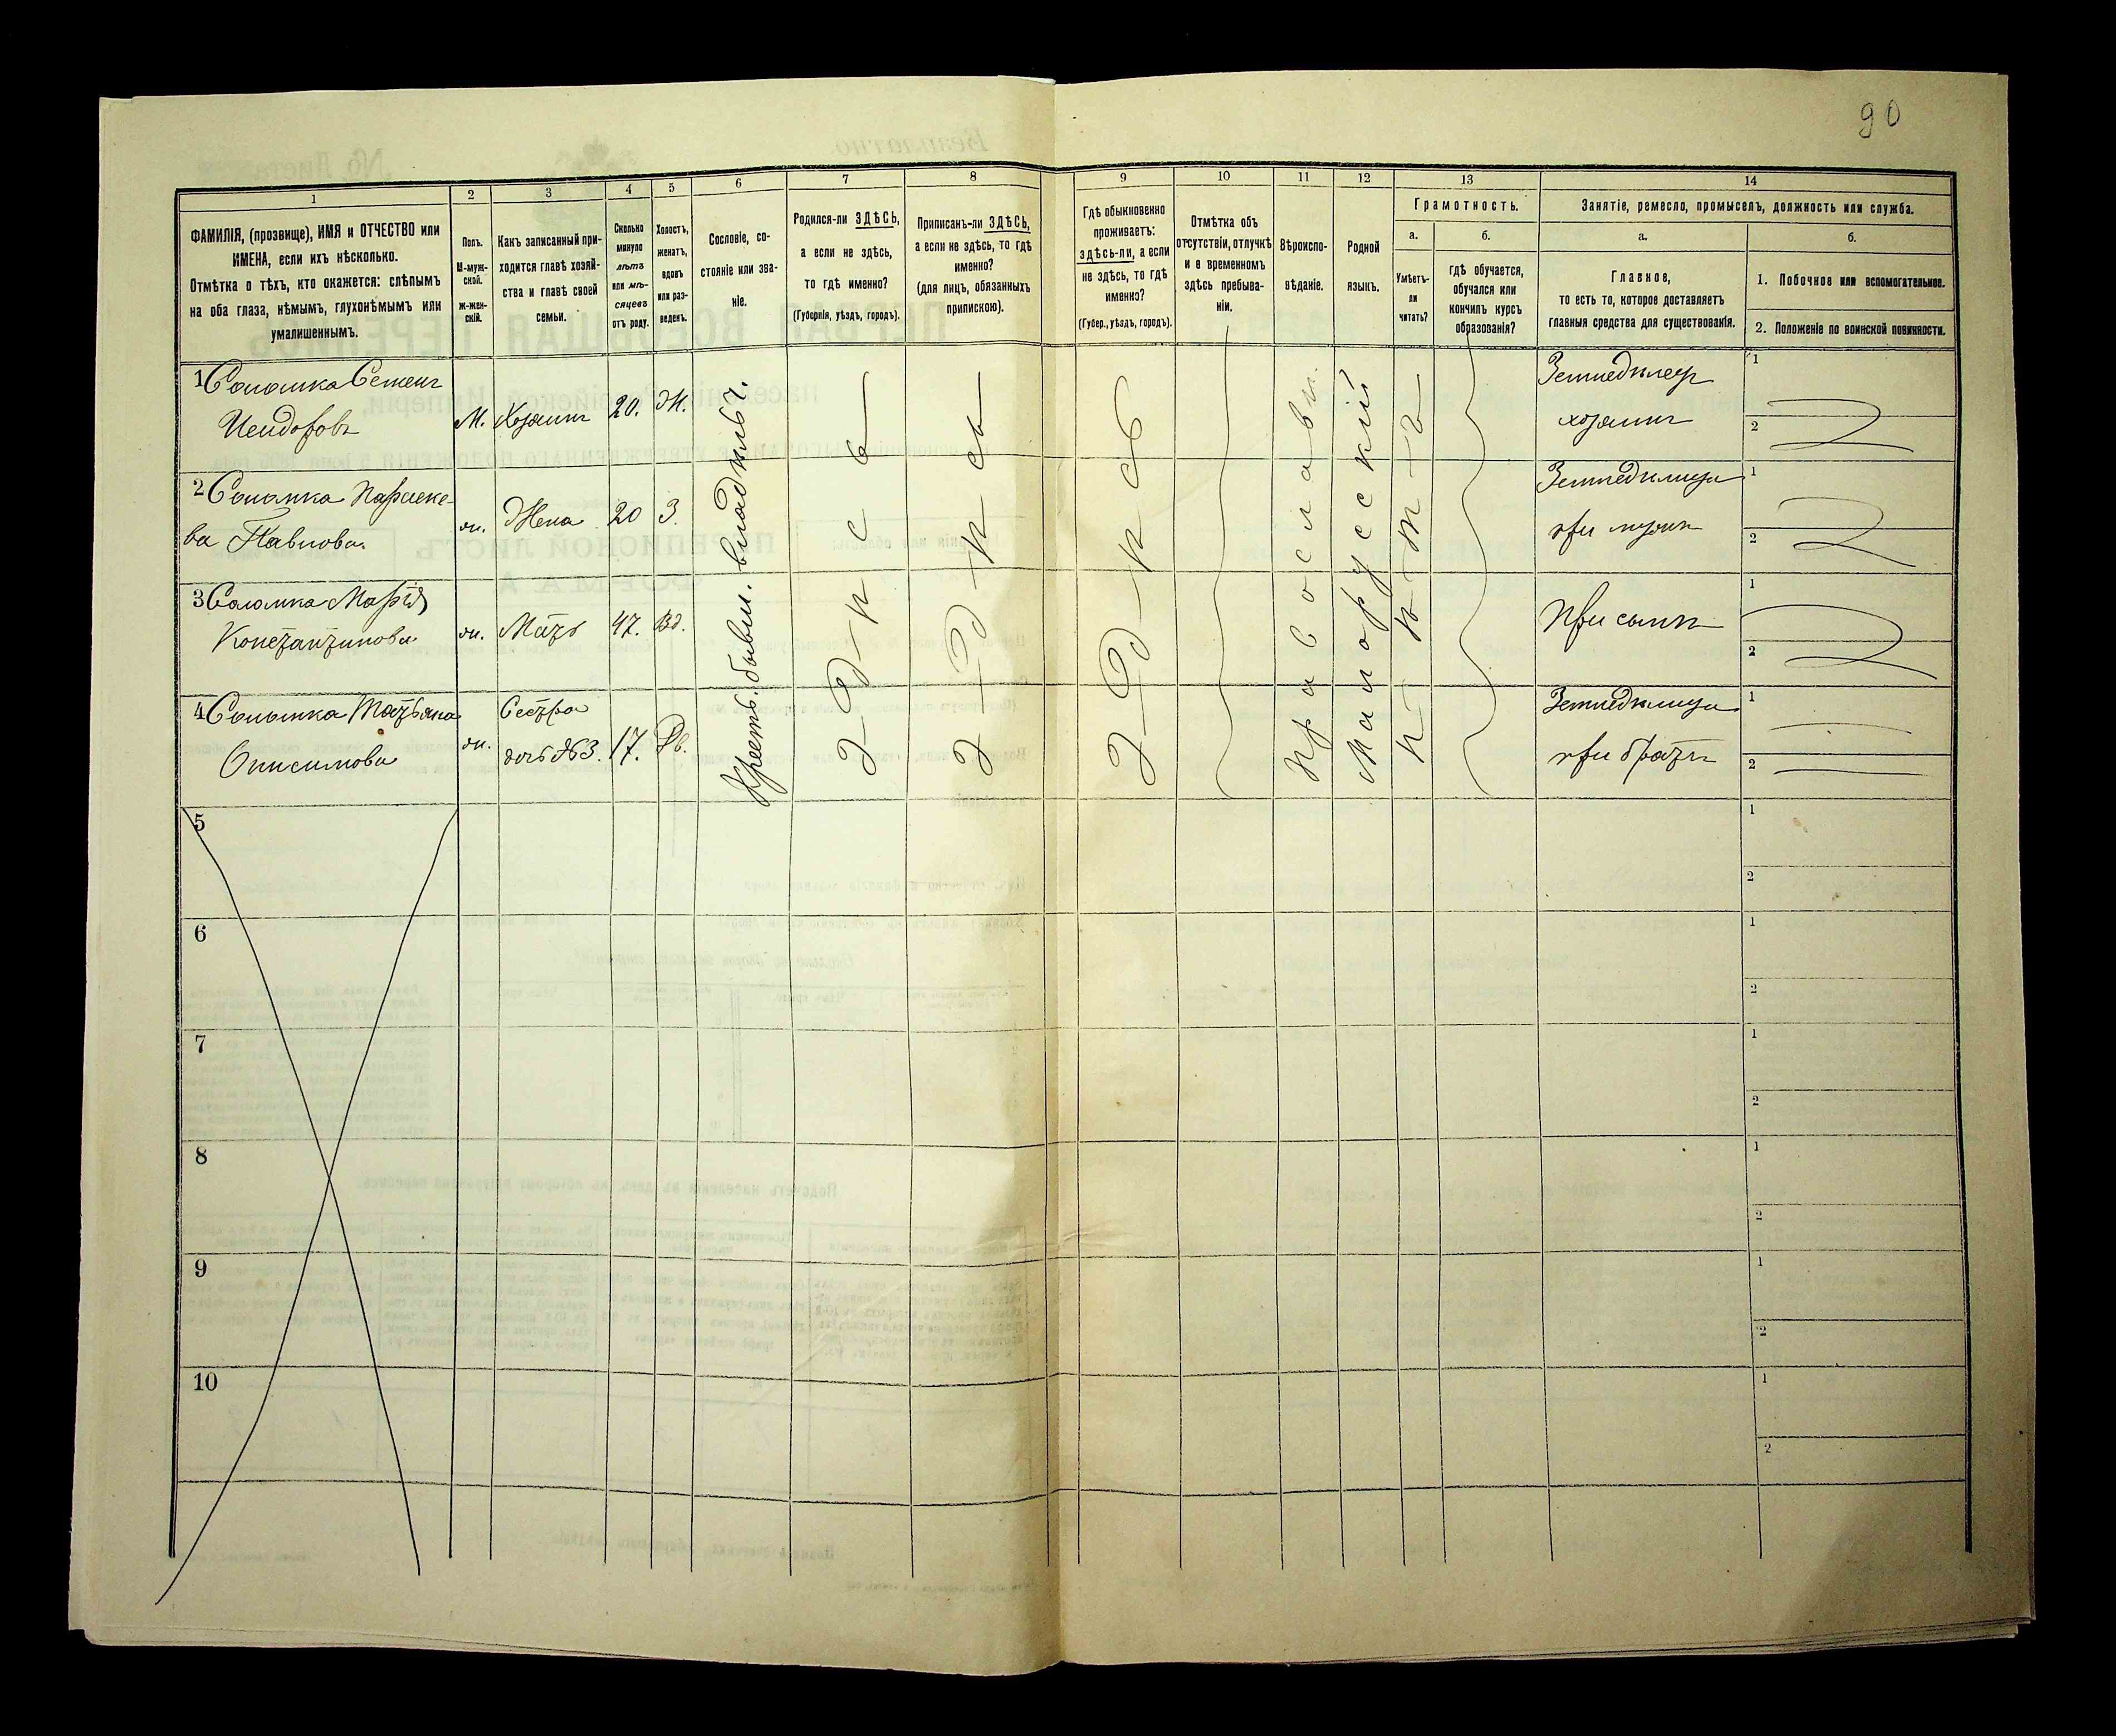 90
1
2
3
4
5
6
7
8
9
10
11
12
13
14
ФАМИЛІЯ, (прозвище), ИМЯ и ОТЧЕСТВО или
ИМЕНА, если ихъ нѣсколько.
Отмѣтка о тѣхъ, кто окажется: слѣпымъ
на оба глаза, нѣмымъ, глухонѣмымъ или
умалишеннымъ.
Полъ.
М-муж-
ской.
Ж-жен-
скій.
Какъ записанный при-
ходится главѣ хозяй-
ства и главѣ своей
семьи.
Сколько
минуло
лѣтъ
или мѣ-
сяцевъ
отъ роду.
Холостъ,
женатъ,
вдовъ
или раз-
веденъ.
Сословіе, со-
стояніе или зва-
ніе.
Родился-ли ЗДѢСЬ,
а если не здѣсь,
то гдѣ именно?
(Губернія, уѣздъ, городъ).
Приписанъ-ли ЗДѢСЬ,
а если не здѣсь, то гдѣ
именно?
(для лицъ, обязанныхъ
припискою).
Гдѣ обыкновенно
проживаетъ:
здѣсь-ли, а если
не здѣсь, то гдѣ
именно?
(Губер., уѣздъ, городъ).
Отмѣтка объ
отсутствіи, отлучкѣ
и о временномъ
здѣсь пребыва-
ніи.
Вѣроиспо-
вѣданіе.
Родной
языкъ.
Грамотность.
а.
Умѣетъ-
ли
читать?
б.
гдѣ обучается,
обучался или
кончилъ курсъ
образованія?
Занятіе, ремесло, промыселъ, должность или служба.
а.
Главное,
то есть то, которое доставляетъ
главныя средства для существованія.
б.
1. Побочное или вспомогательное.
2. Положеніе по воинской повинности.
1 Соломка Семенъ
Исидоровъ
М.
Хозяинъ
20.
Ж.
Земледѣлецъ
хозяинъ
1
2
2 Соломка Параске-
ва Павлова.
ж.
Жена
20
З.
Земледѣлица
при мужѣ
1
2
3 Соломка Марія
Константинова
ж.
Мать
47.
Вд.
При сынѣ
1
2
4 Соломка Татьяна
Онисимова
ж.
Сестра
дочь №3.
17.
Дв.
Земледѣлица
при братѣ
1
2
Крестъ. бывш. владѣльч.
Здѣсь
Здѣсь
Здѣсь
Православн.
Малорусскій
Нѣтъ
5
1
2
6
1
2
7
1
2
8
1
2
9
1
2
10
1
2